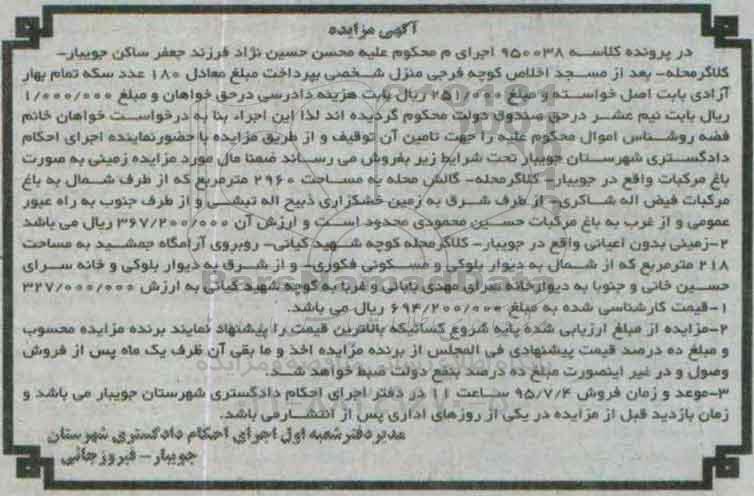 آگهی مزایده
در پرونده کلاسه ۹۵۰۰۳۸ اجرای م محکوم علیه محسن حسین نژاد فرزند جعفر ساکن جویبار-
کلاگرمحله- بعد از مسجد اخلاص کوچه فرجی منزل شخصی بپرداخت مبلغ معادل ۱۸۰ عدد سکه تمام بهار
آزادی بابت اصل خواسته و مبلغ ۲۵۱/۰۰۰ ریال بابت هزینه دادرسی درحق خواهان و مبلغ ۱/۰۰۰/۰۰۰
ریال بابت نیم عشر درحق صندوق دولت محکوم گردیده اند لذا این اجراء بنا به درخواست خواهان خانم
فضه روشناس اموال محکوم علیه را جهت تامین آن توقیف و از طریق مزایده با حضورنماینده اجرای احکام
دادگستری شهرستان جویبار تحت شرایط زیر بفروش می رساند ضمنا مال مورد مزایده زمینی به صورت
باغ مرکبات واقع در جویبار- کلاگرمحله- گالش محله به مساحت ۲۹۶۰ مترمربع که از طرف شمال به باغ
مرکبات فیض اله شاکری- از طرف شرق به زمین خشکزاری ذبیح اله تبشی و از طرف جنوب به راه عبور
عمومی و از غرب به باغ مرکبات حسین محمودی محدود است و ارزش آن ۳۶۷/۲۰۰/۰۰۰ ریال می باشد
۲-زمینی بدون اعیانی واقع در جویبار- کلاگرمحله کوچه شهید کیانی- روبروی آرامگاه جمشید به مساحت
۲۱۸ مترمربع که از شمال به دیوار بلوکی و مسکونی فکوری- و از شرق به دیوار بلوکی و خانه سرای
حسین خانی و جنوبا به دیوارخانه سرای مهدی بابائی و غربا به کوچه شهید کیانی به ارزش ۳۲۷/۰۰۰/۰۰۰
۱-قیمت کارشناسی شده به مبلغ ۶۹۴/۲۰۰/۰۰۰ ریال می باشد.
۲-مزایده از مبلغ ارزیابی شده پایه شروع کسانیکه بالاترین قیمت را پیشنهاد نمایند برنده مزایده محسوب
و مبلغ ده درصد قیمت پیشنهادی فی المجلس از برنده مزایده اخذ و ما بقی آن ظرف یک ماه پس از فروش
وصول و در غیر اینصورت مبلغ ده درصد بنفع دولت ضبط خواهد شد.
۳-موعد و زمان فروش ۹۵/۷/۴ ساعت ۱۱ در دفتر اجرای احکام دادگستری شهرستان جویبار می باشد و
زمان بازدید قبل از مزایده در یکی از روزهای اداری پس از انتشارمی باشد.
مدیردفترشعبه اول اجرای احکام دادگستری شهرستان
جویبار- فیروزجائی